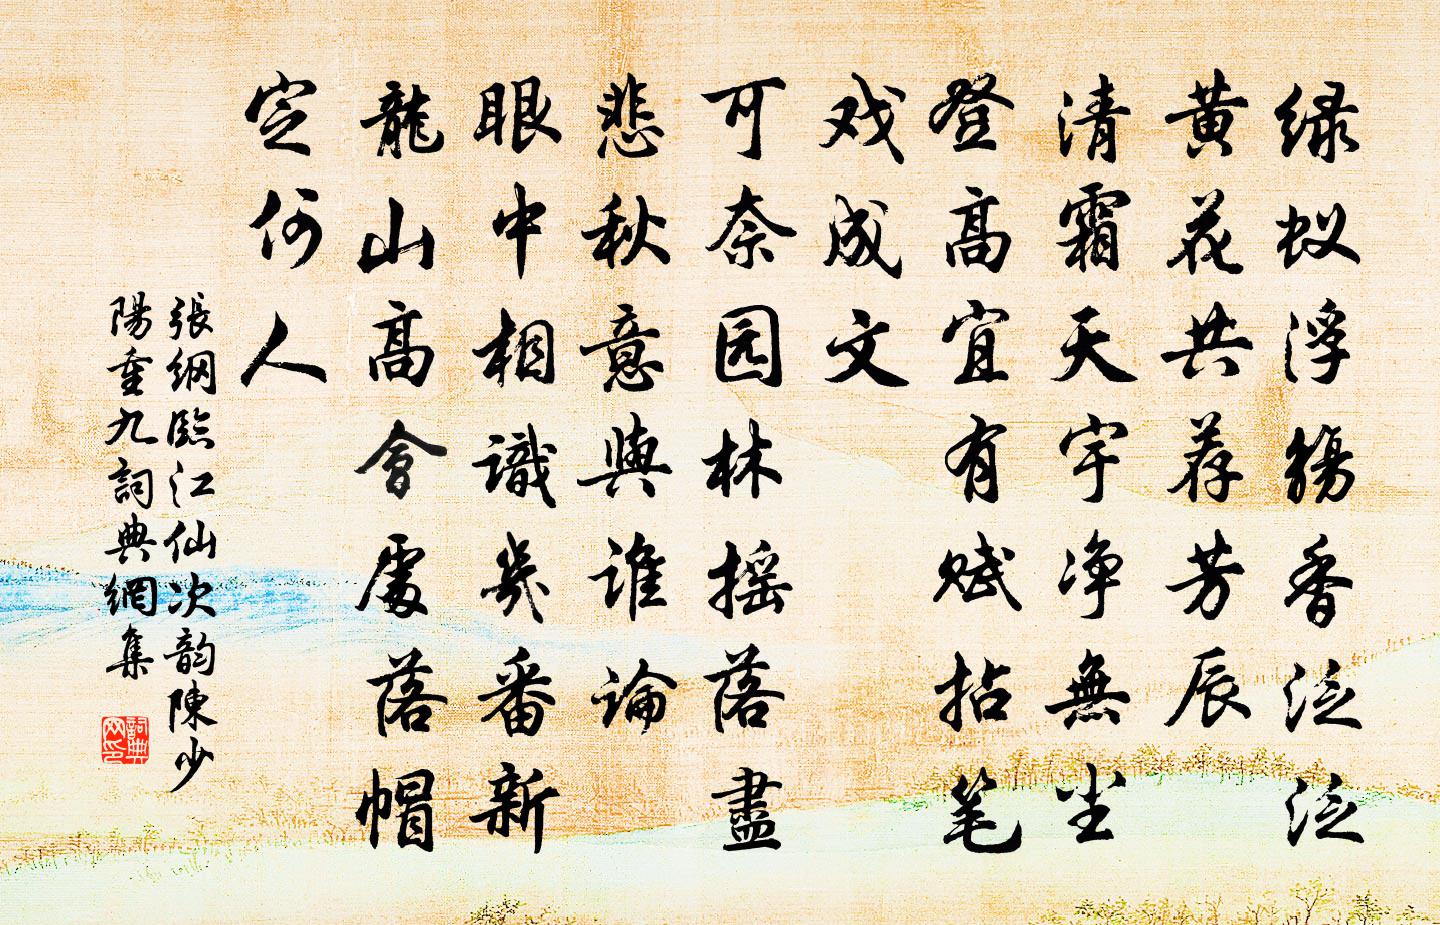 绿蚁浮觞香泛泛
黄花共荐芳辰
清霜天宇净無尘
登高宜有赋拈笔
戏成文
可奈园林摇落盡
悲秋意與谁論
眼中相識幾番新
龍山高會處落帽
定何人
張綱臨江仙次韵陳少
陽重九詞典網集
詞典
网印